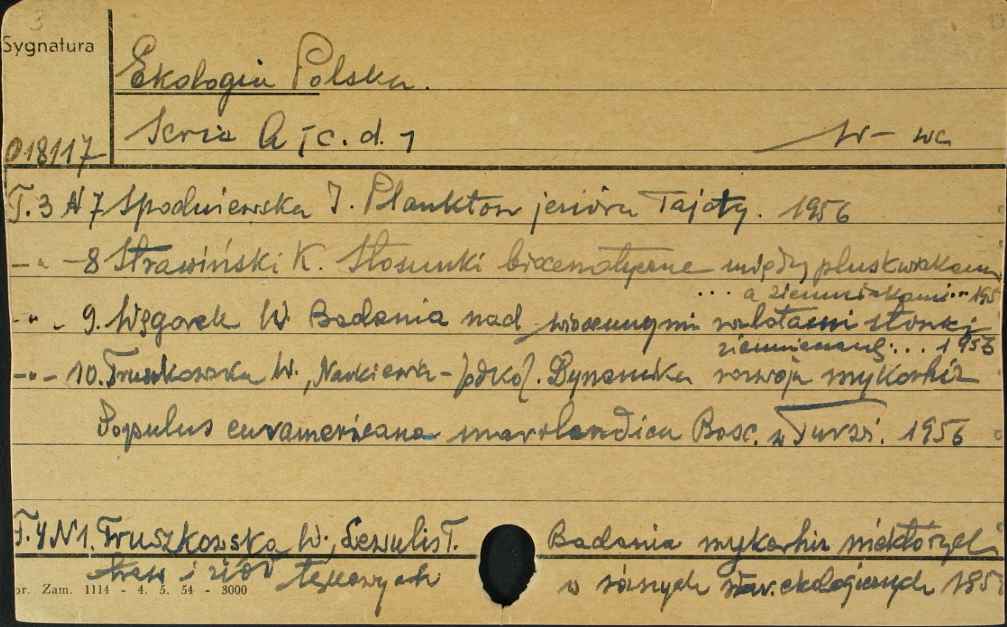 3
Sygnatura
Ekologia Polska.
018117
Seria A [c. d. 1
W-wa
T.3 N 7 Spodniewska J. Plankton jeziora Tajty. 1956
-"- 8 Strawiński K. Stosunki biocenotyczne między pluskwakami
... a ziemniakami... 195
-"- 9. Węgorek W. Badania nad wiosennymi wylotami stonki
ziemniaczanej... 1956
-"- 10. Truszkowska W., Dynamika rozwoju mykorhiz
Populus euramericana marylandica Bosc. w Turzi. 1956
T.4 N 1. Truszkowska W., T. Badania mykorhiz niektórych
drzew i ziół w różnych war. ekologicznych 195
or. Zam. 1114 - 4. 5. 54 - 3000